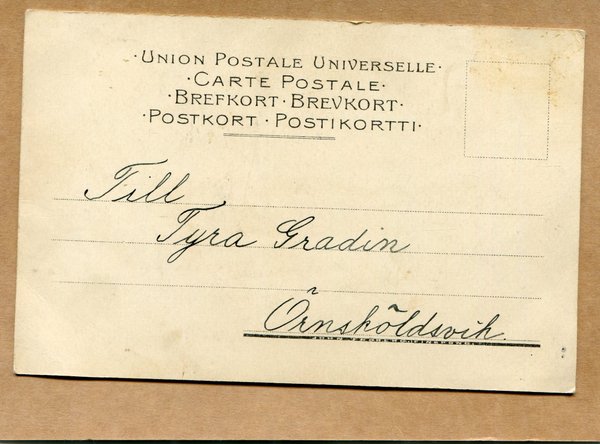 ·UNION POSTALE UNIVERSELLE·
·CARTE POSTALE·
·BREFKORT·BREVKORT·
·POSTKORT·POSTIKORTTI·
Till
Tyra Gradin
Örnsköldsvik.